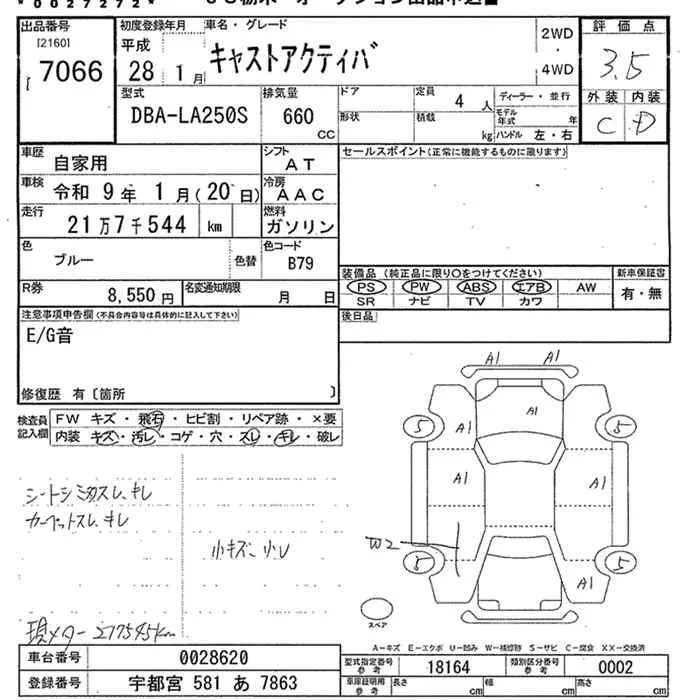 *0027272*
出品番号
[2160]
7066
初度登録年月
平成
28 1月
車名・グレード
キャストアクティバ
2WD
・
4WD
評価点
3.5
外装 内装
C D
型式
DBA-LA250S
排気量
660
CC
ドア
形状
定員
4人
積載
kg
ディーラー・並行
モデル年式 年
ハンドル 左・右
車歴
自家用
シフト
AT
車検
令和 9年 1月(20日)
冷房
AAC
走行
21万7千544 km
燃料
ガソリン
色
ブルー
色替
色コード
B79
R券
8,550円
名変通知期限
月 日
セールスポイント(正常に機能するものに限ります)
装備品 (純正品に限り○をつけてください)
PS PW ABS エアB AW
SR ナビ TV カワ
新車保証書
有・無
後日品
注意事項申告欄(不具合内容等は具体的に記入して下さい)
E/G音
修復歴 有〔箇所 〕
検査員記入欄
FW キズ・飛石・ヒビ割・リペア跡・×要
内装 キズ・汚レ・コゲ・穴・スレ・キレ・破レ
シートシミ スレ、キレ
カーペットスレ、キレ
小キズ 小レ
現メーター 277545km
A1 A1
A1
5 A1 5
A1 A1
W2
5 A1 5
スペア
A-キズ E-エクボ U-凹み W-補修跡 S-サビ C-腐食 XX-交換済
車台番号
0028620
登録番号
宇都宮 581 あ 7863
型式指定番号
参考
18164
類別区分番号
参考
0002
車庫証明用
参考
長さ cm
幅 cm
高さ cm